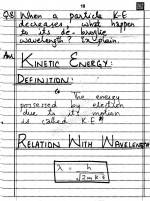 18
Q8 When a particle K.E
decreases, what happen
to its de-broglie
wavelength? Explain.
Ans
KINETIC ENERGY:
DEFINITION:
"The energy
possessed by electron
due to its motion
is called K.E"
RELATION WITH WAVELENGTH
λ = h / √2m K.E